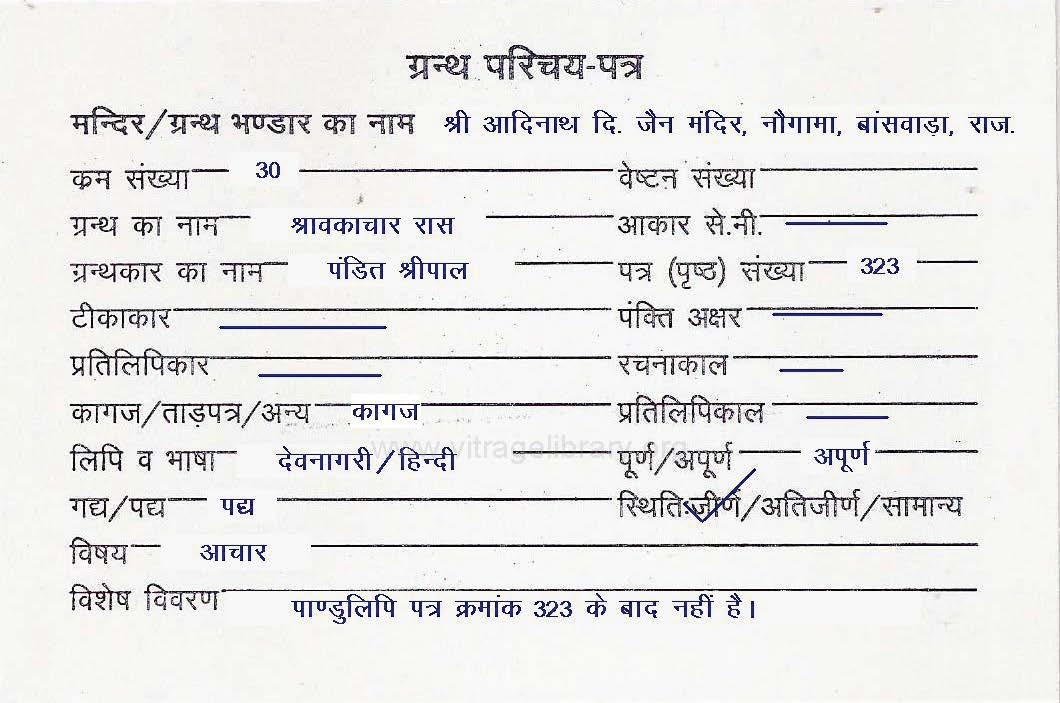 ग्रन्थ परिचय-पत्र
मन्दिर/ग्रन्थ भण्डार का नाम श्री आदिनाथ दि. जैन मंदिर, नौगामा, बांसवाड़ा, राज.
कम संख्या 30 वेष्टन संख्या
ग्रन्थ का नाम श्रावकाचार रास आकार से.मी.
ग्रन्थकार का नाम पंडित श्रीपाल पत्र (पृष्ठ) संख्या 323
टीकाकार पंक्ति अक्षर
प्रतिलिपिकार रचनाकाल
कागज/ताड़पत्र/अन्य कागज प्रतिलिपिकाल
www.vitragelibrary.org
लिपि व भाषा देवनागरी/हिन्दी पूर्ण/अपूर्ण अपूर्ण
गद्य/पद्य पद्य स्थिति:जीर्ण/अतिजीर्ण/सामान्य
विषय आचार
विशेष विवरण पाण्डुलिपि पत्र क्रमांक 323 के बाद नहीं है।